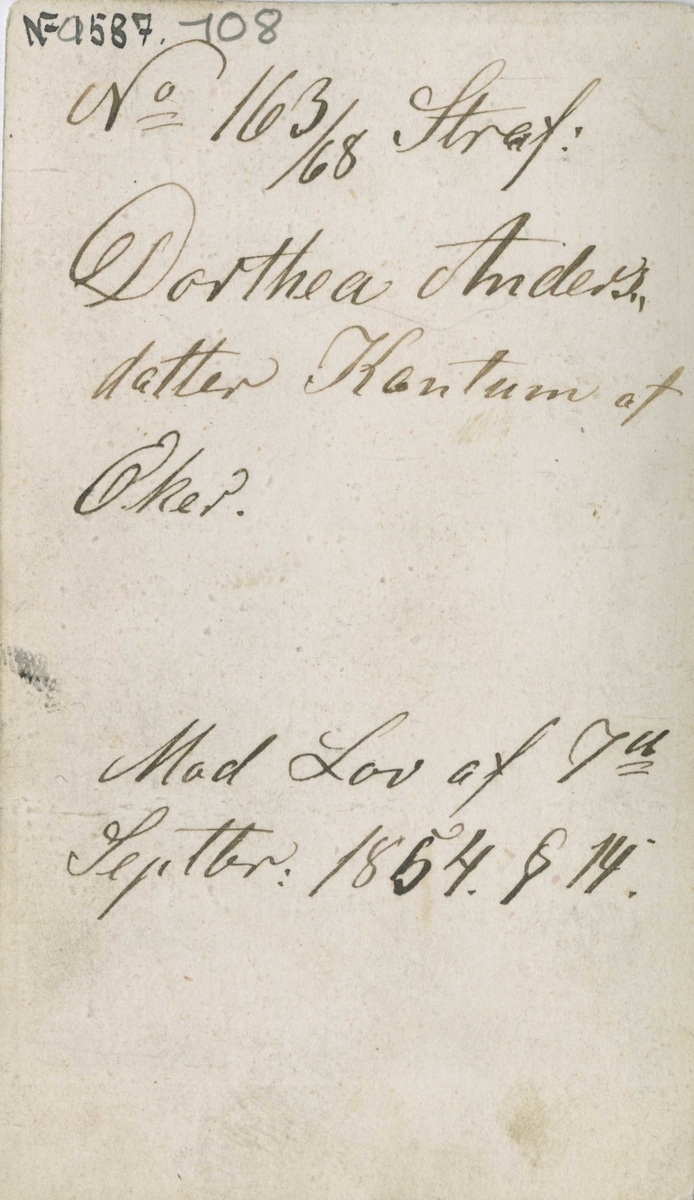 NF 9587. 108
No 163/68 Straf:
Dorthea Anders„
datter Kontum af
Eker.
Mod Lov af 7de
Septbr: 1854. § 14.